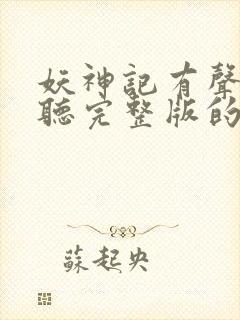 妖神記有聲
聽完整版的
蘇起央